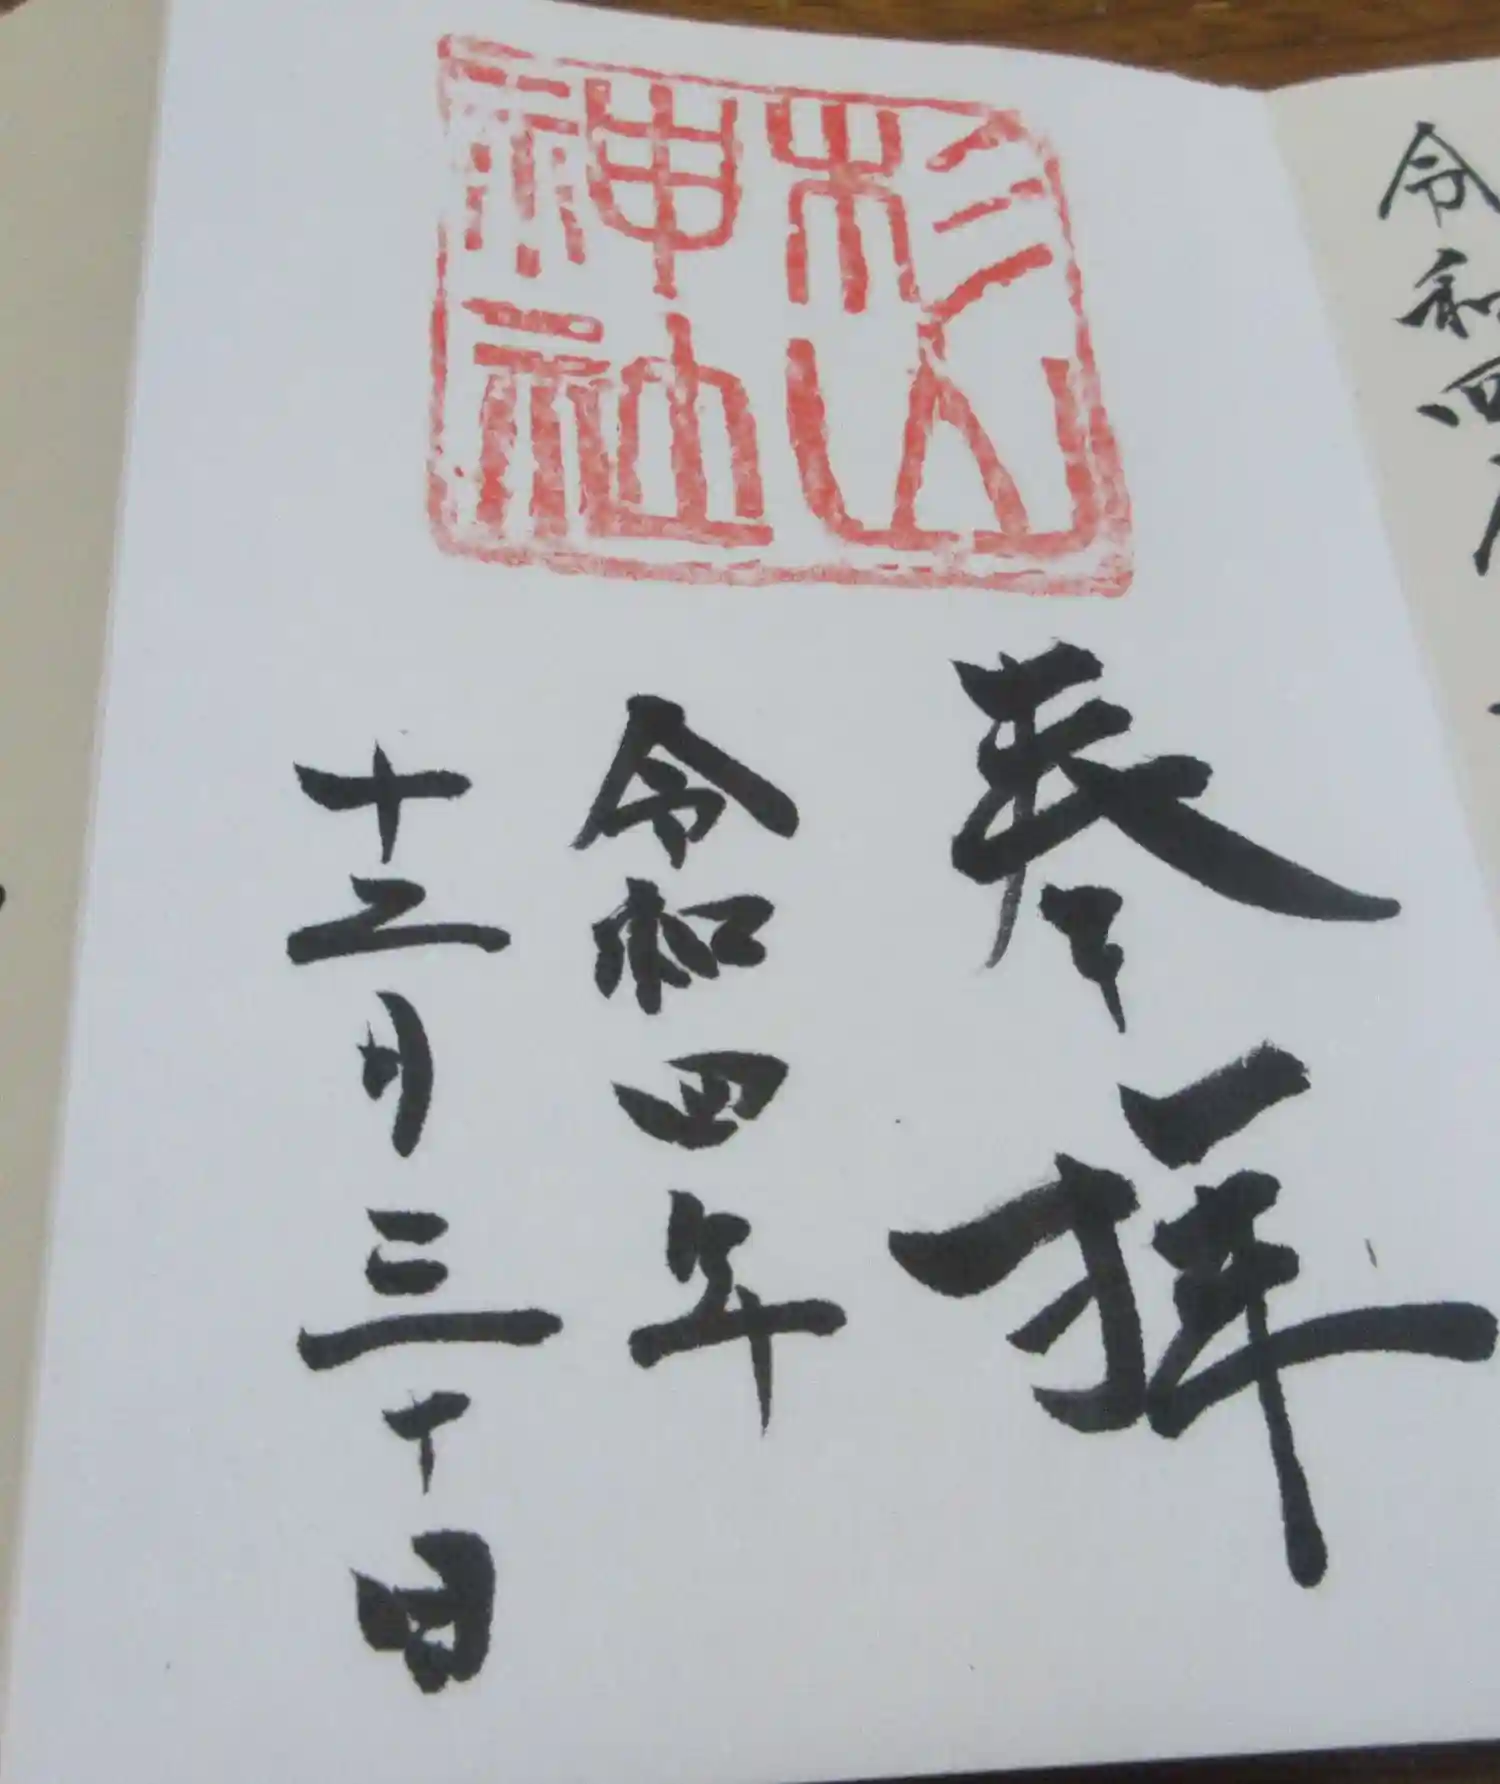 杉山
神社
奉拝
令和四年
十二月三十日
令和四年